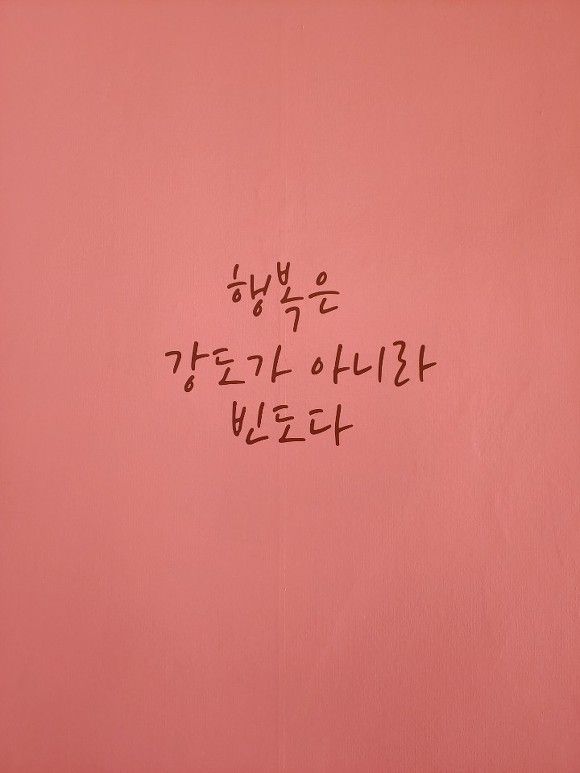 행복은
강도가 아니라
빈도다